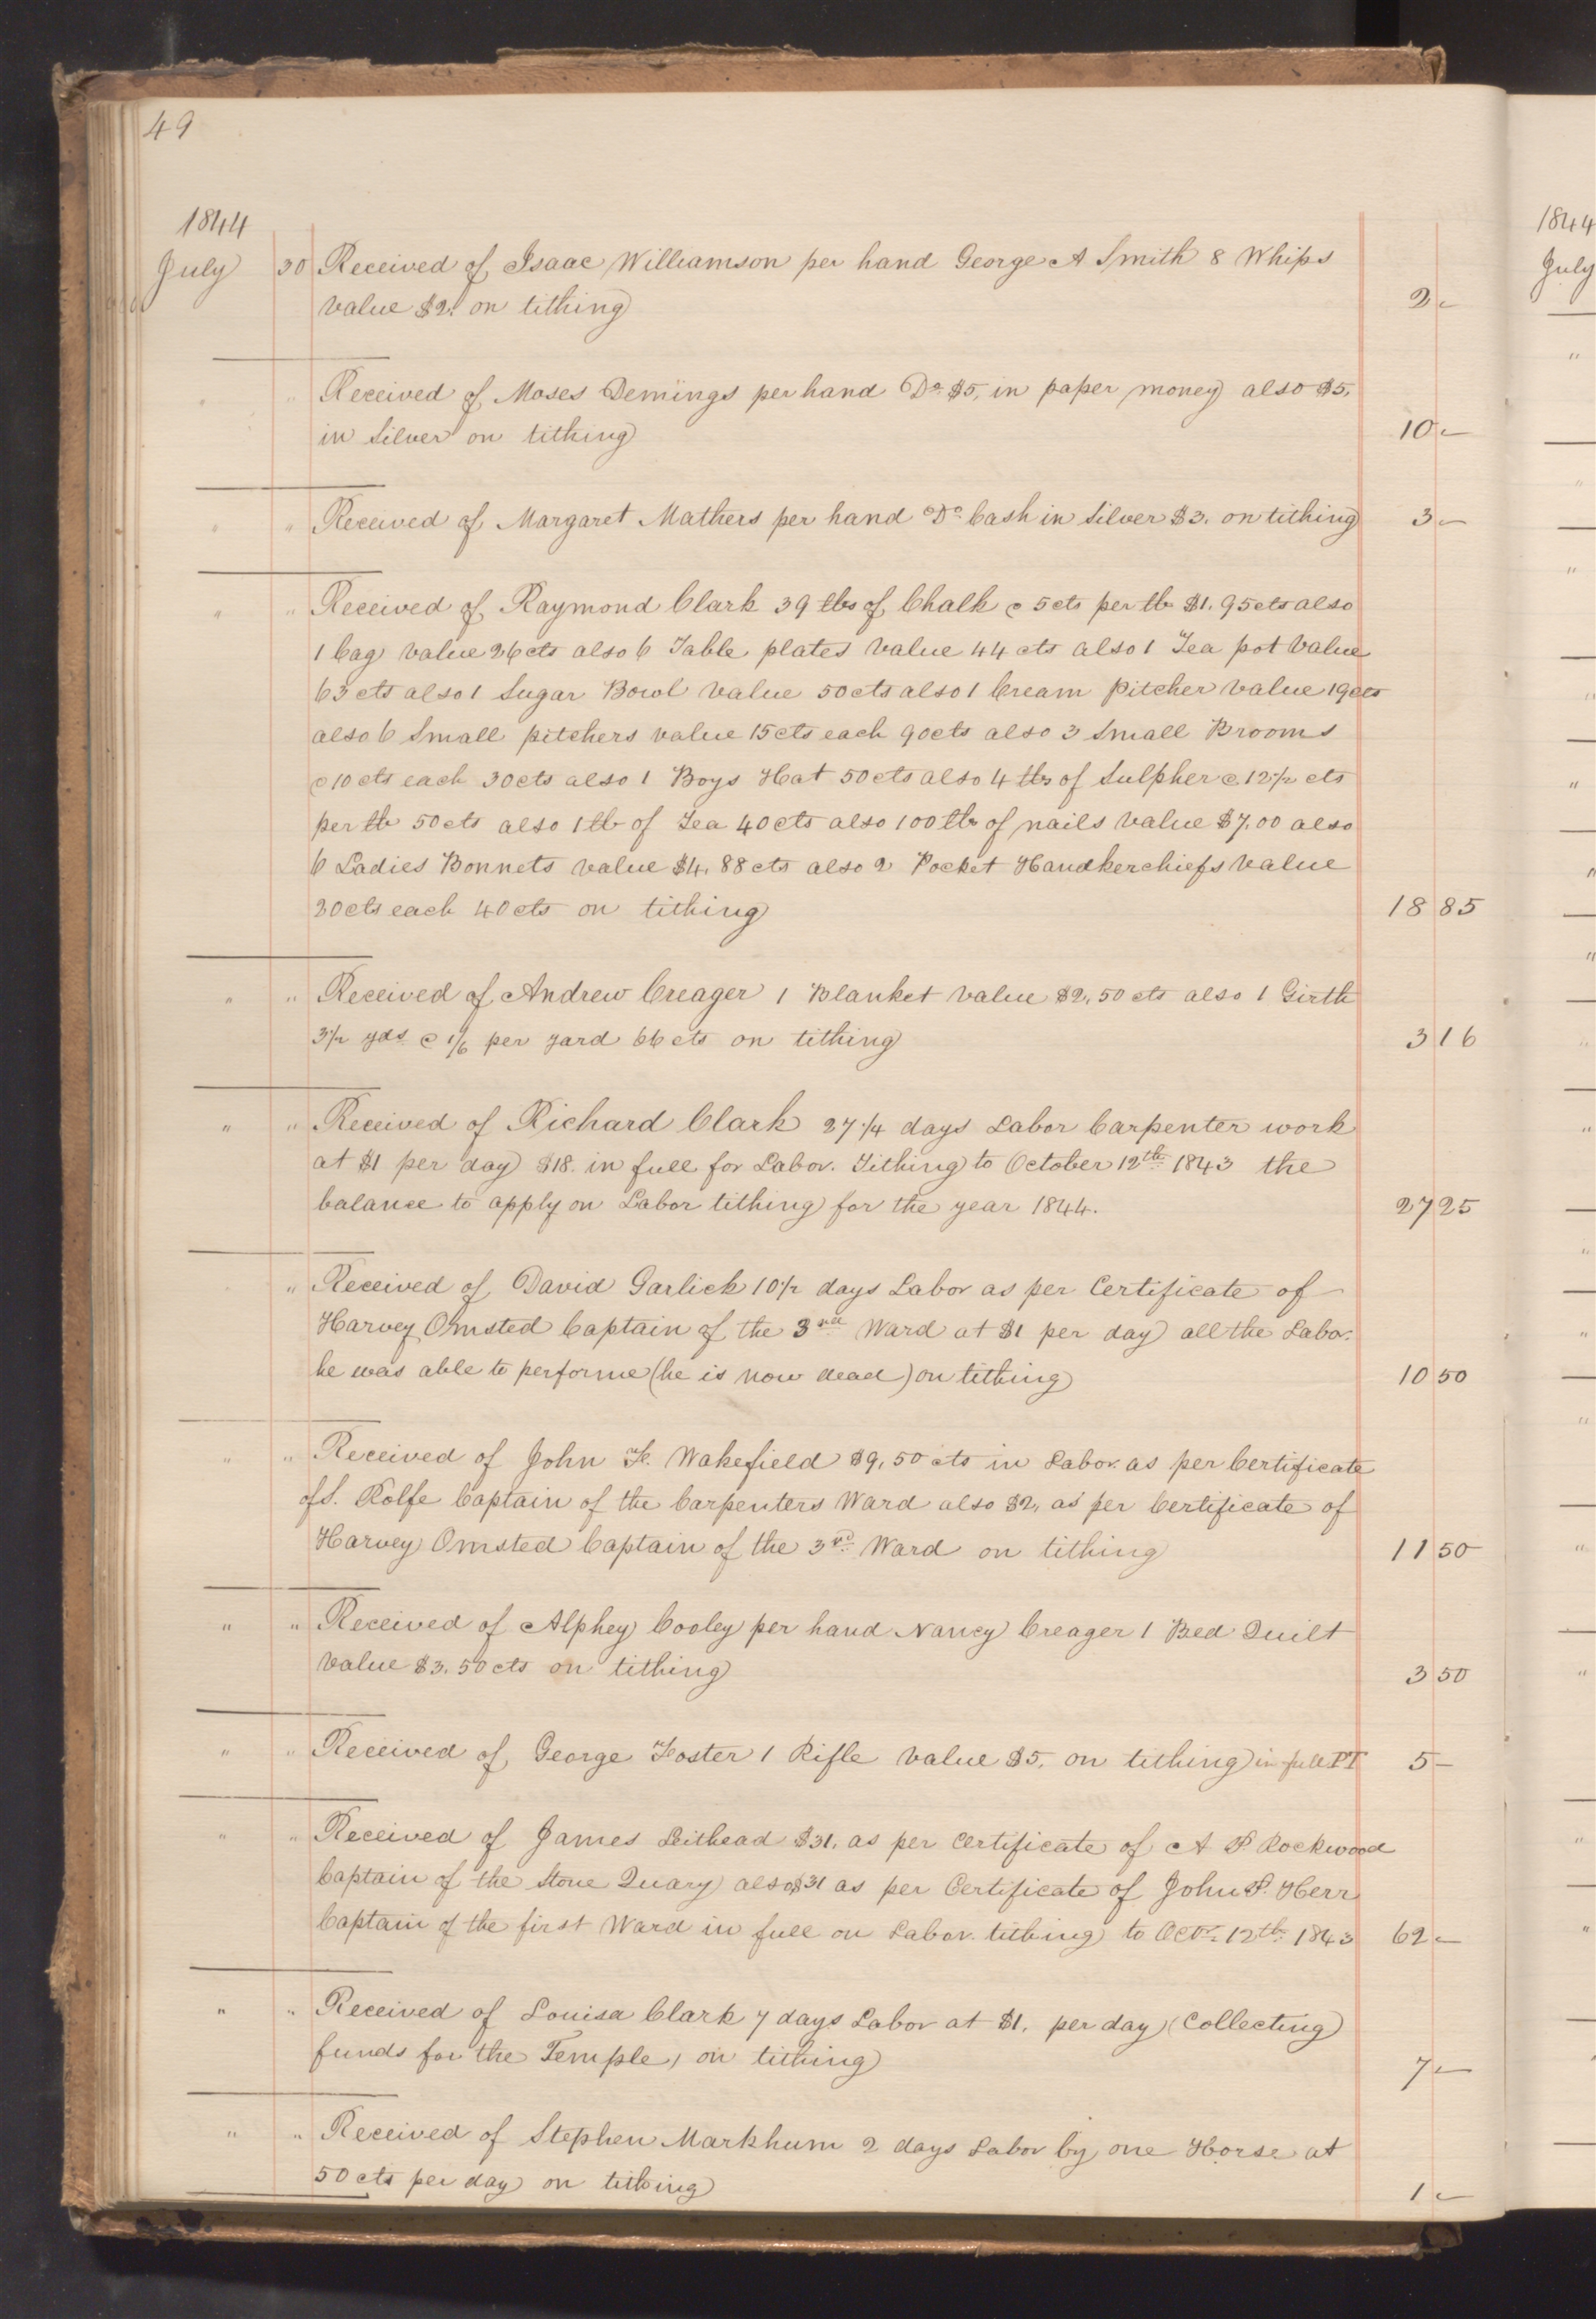 49
1844
July 30 Received of Isaac Williamson per hand George A Smith 8 Whips
value $2. on tithing 2 -
" " Received of Moses Demings per hand Do. $5, in paper money also $5,
in Silver on tithing 10 -
" " Received of Margaret Mathers per hand Do. Cash in Silver $3. on tithing 3 -
" " Received of Raymond Clark 39 lbs of Chalk @ 5 cts per lb $1.95 cts also
1 bag value 26 cts also 6 Table plates value 44 cts also 1 Tea pot value
63 cts also 1 Sugar Bowl value 50 cts also 1 Cream Pitcher value 19 cts
also 6 Small pitchers value 15 cts each 90 cts also 3 Small Brooms
@ 10 cts each 30 cts also 1 Boys Hat 50 cts also 4 lbs of Sulpher @ 12 1/2 cts
per lb 50 cts also 1 lb of Tea 40 cts also 100 lbs of nails value $7.00 also
6 Ladies Bonnets value $4.88 cts also 2 Pocket Handkerchiefs value
20 cts each 40 cts on tithing 18 85
" " Received of Andrew Creager 1 Blanket value $2,50 cts also 1 Girth
3 1/2 yds @ 1/6 per yard 66 cts on tithing 3 16
" " Received of Richard Clark 27 1/4 days Labor Carpenter work
at $1 per day $18. in full for Labor. Tithing to October 12th 1843 the
balance to apply on Labor tithing for the year 1844. 27 25
" Received of David Garlick 10 1/2 days Labor as per Certificate of
Harvey Omsted Captain of the 3rd Ward at $1 per day all the Labor.
he was able to performe (he is now dead) on tithing 10 50
" " Received of John F. Wakefield $9,50 cts in Labor. as per Certificate
of S. Rolfe Captain of the Carpenters Ward also $2, as per Certificate of
Harvey Omsted Captain of the 3rd. Ward on tithing 11 50
" " Received of Alphey Cooley per hand Nancy Creager 1 Bed Quilt
value $3.50 cts on tithing 3 50
" " Received of George Foster 1 Rifle value $5, on tithing in full PT 5 -
" " Received of James Leithead $31. as per Certificate of A P Rockwood
Captain of the Stone Quary also $31 as per Certificate of John P. Herr
Captain of the first Ward in full on Labor. tithing to Octr. 12th. 1843 62 -
" " Received of Louisa Clark 7 days Labor at $1. per day (Collecting
funds for the Temple) on tithing 7 -
" " Received of Stephen Markhum 2 days Labor by one Horse at
50 cts per day on tithing 1 -
1844
July